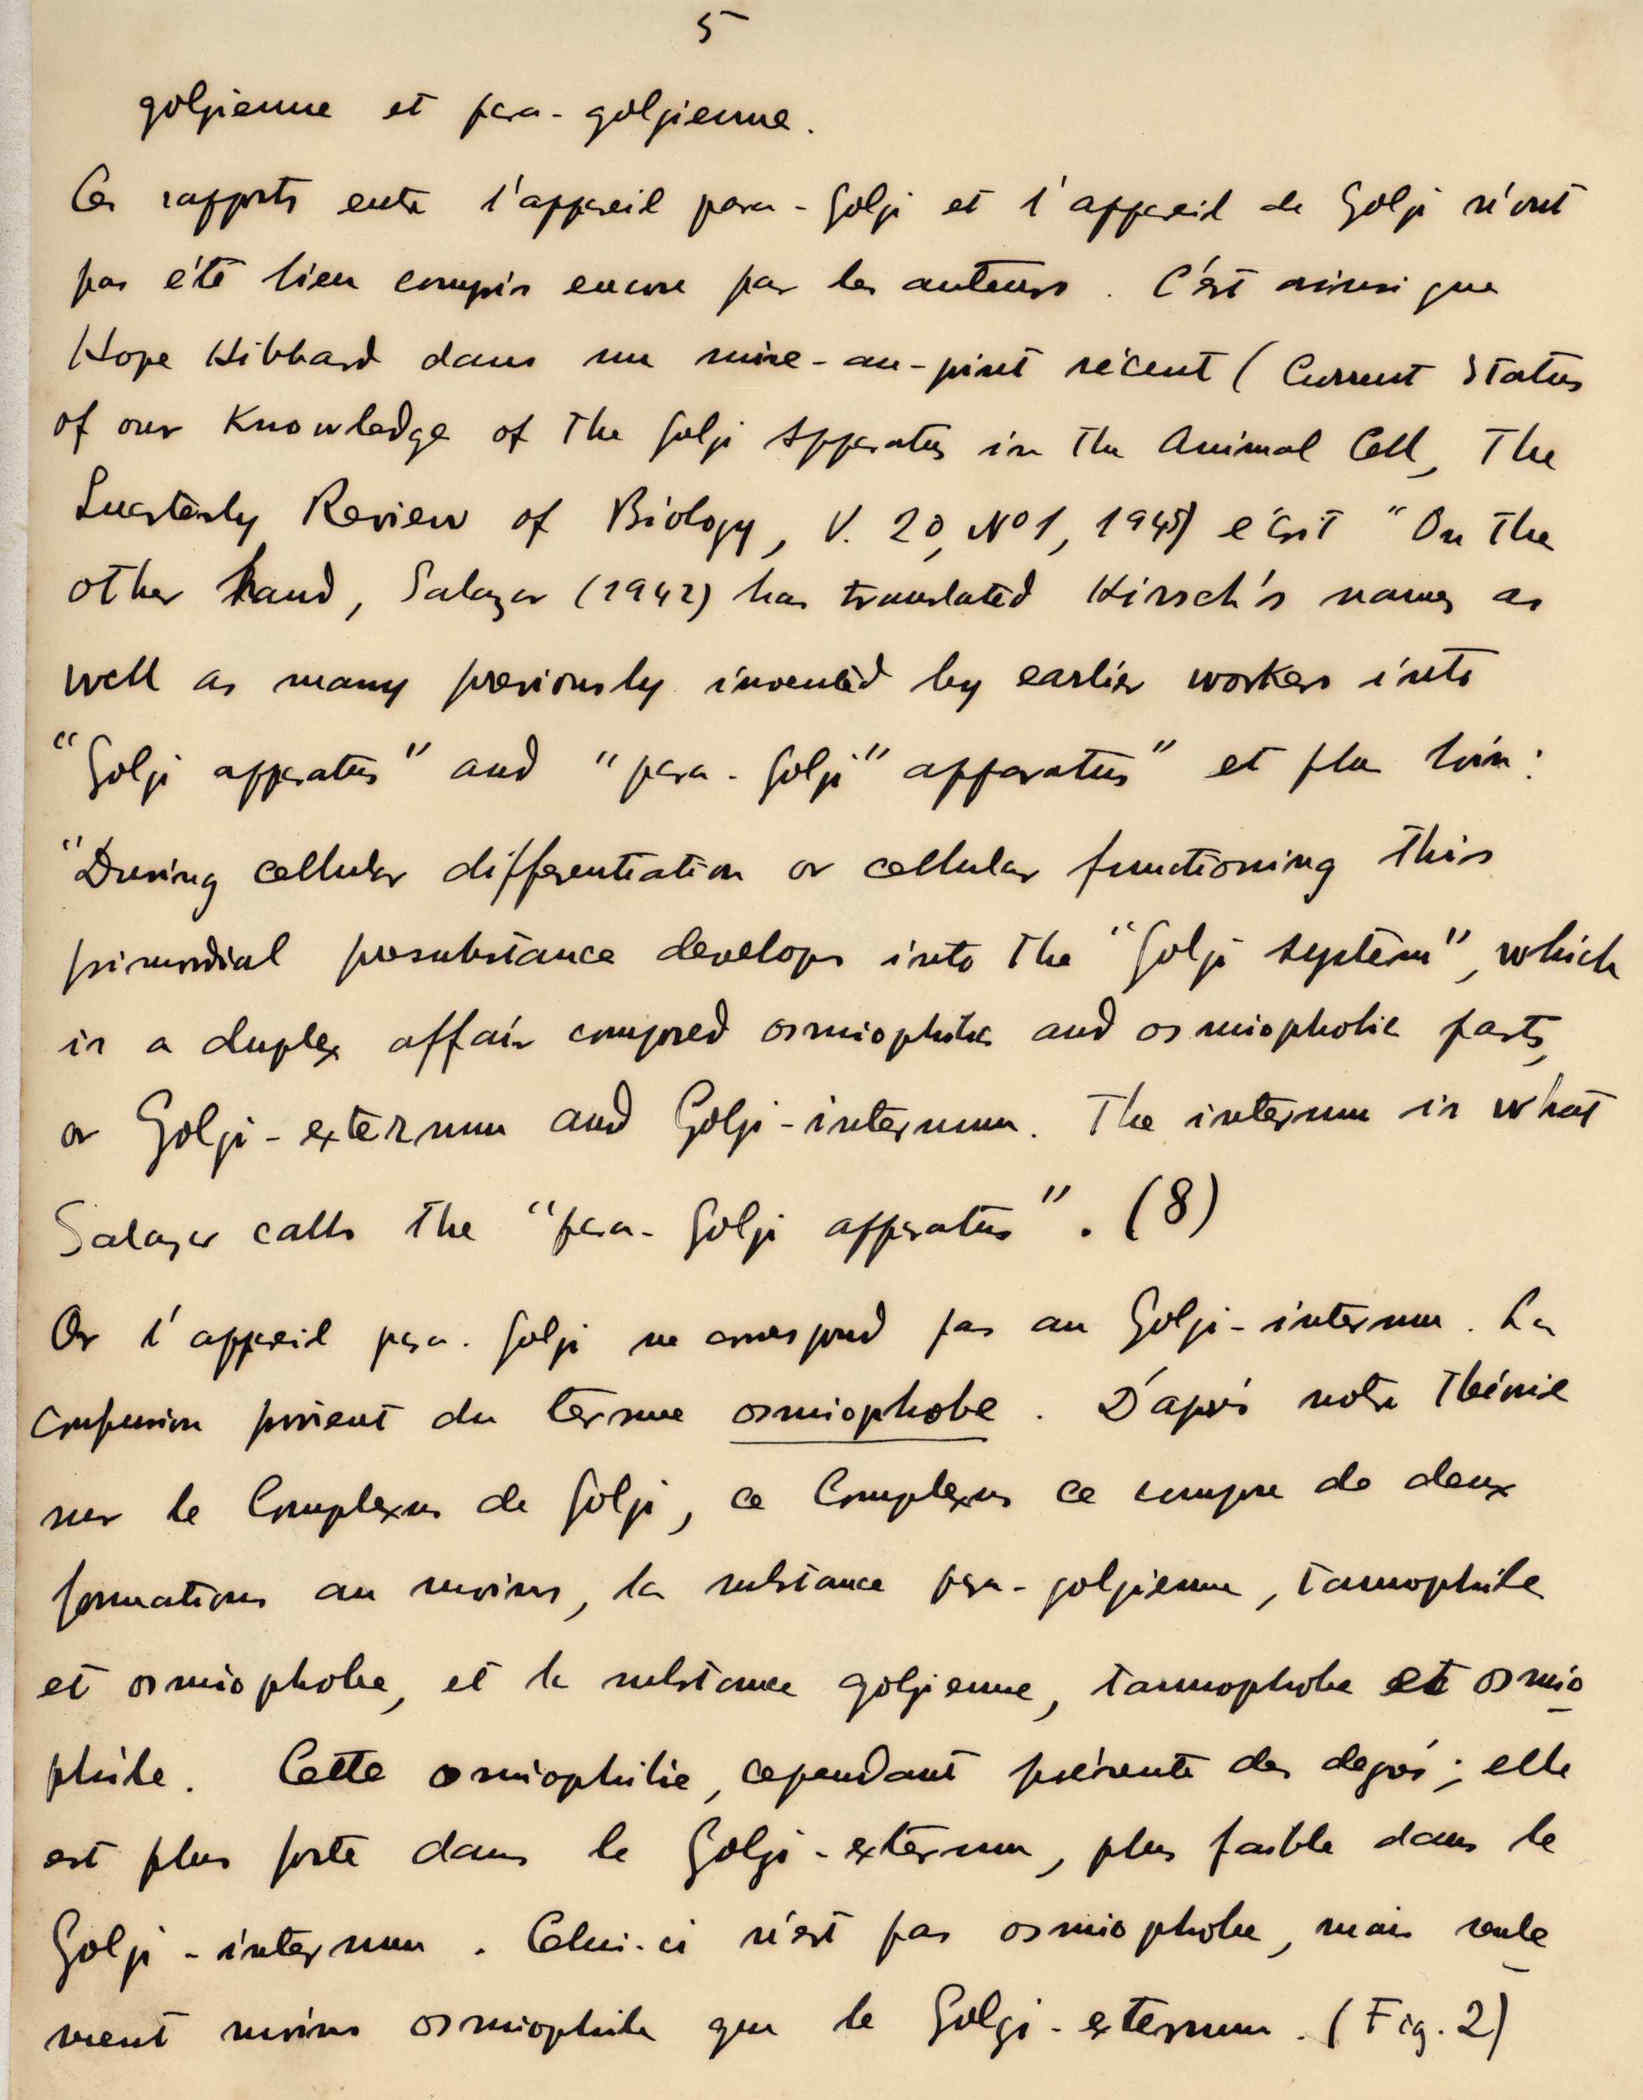 5
golgienne et para-golgienne.
Ces rapports entre l'appareil para-Golgi et l'appareil de Golgi n'ont
pas été bien compris encore par les auteurs. C'est ainsi que
Hope Hibbard dans un mise-au-point récent (Current Status
of our Knowledge of The Golgi Apparatus in The Animal Cell, The
Quarterly Review of Biology, V. 20, Nº1, 1945) écrit "On The
other hand, Salazar (1942) has translated Hirsch's names as
well as many previously invented by earlier workers into
"Golgi apparatus" and "para-Golgi" apparatus" et plus loin:
"During cellular differentiation or cellular functioning this
primordial presubstance develops into The "Golgi system", which
is a duplex affair composed osmiophilic and osmiophobic parts,
or Golgi-externum and Golgi-internum. The internum is what
Salazar calls The "para-Golgi apparatus". (8)
Or l'appareil para-Golgi ne correspond pas au Golgi-internum. La
confusion provient du terme osmiophobe. D'après notre Théorie
sur le Complexus de Golgi, ce Complexus ce compose de deux
formations au moins, la substance para-golgienne, tannophile
et osmiophobe, et la substance golgienne, tannophobe et osmio
phile. Cette osmiophilie, cependant présente des degrés; elle
est plus forte dans le Golgi-externum, plus faible dans le
Golgi-internum. Celui-ci n'est pas osmiophobe, mais seule
ment moins osmiophile que le Golgi-externum. (Fig. 2)